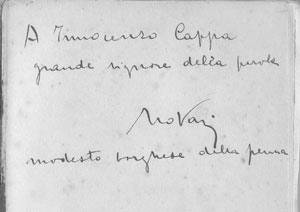 A Innocenzo Cappa
grande signore della parola
Novaro
modesto borghese della penna